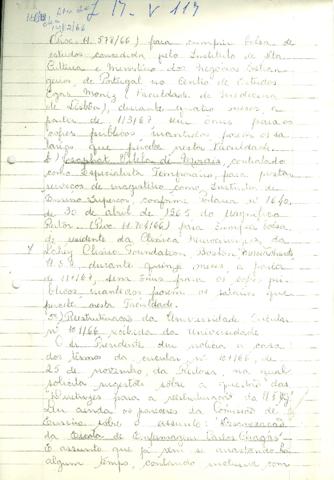 J 17 - V 117
(Proc. H. 578/66) para cumprir bolsa de
estudos concedida pelo Instituto de Alta
Cultura e Ministério dos Negócios Estran-
geiros de Portugal no Centro de Estudos
Egas Moniz (Faculdade de Medicina
de Lisboa), durante quatro meses a
partir de 1/3/67 sem ônus para os
cofres públicos mantidos porém os sa-
lários que percebe nesta Faculdade.
de Morais, contratado
como Especialista Temporário, para prestar
serviços de magistério como Instrutor de
Ensino Superior, conforme Portaria nº 1640,
de 30 de abril de 1965 do Magnífico
Reitor. (Proc. H. 704/66) para cumprir bolsa
de residente da Clínica Neurocirúrgica, da
Lahey Clinic Foundation, Boston,
U.S.A., durante quinze meses, a partir
de 1/1/67, sem ônus para os cofres pú-
blicos mantidos porém os salários que
percebe nesta Faculdade.
5º) Reestruturação da Universidade Circular
nº 101/66, recebida da Universidade
O dr. Presidente deu notícia à casa
dos termos da circular nº 101/66, de
25 de novembro, da Reitoria, na qual
solicita sugestões sobre a questão das
"Diretrizes para a reestruturação da U.F.M.G."
Deu ainda os pareceres da Comissão de
Ensino sobre o assunto:
da Escola de Enfermagem Carlos Chagas" -
É assunto que já vem se arrastando há
algum tempo, contando inclusive com